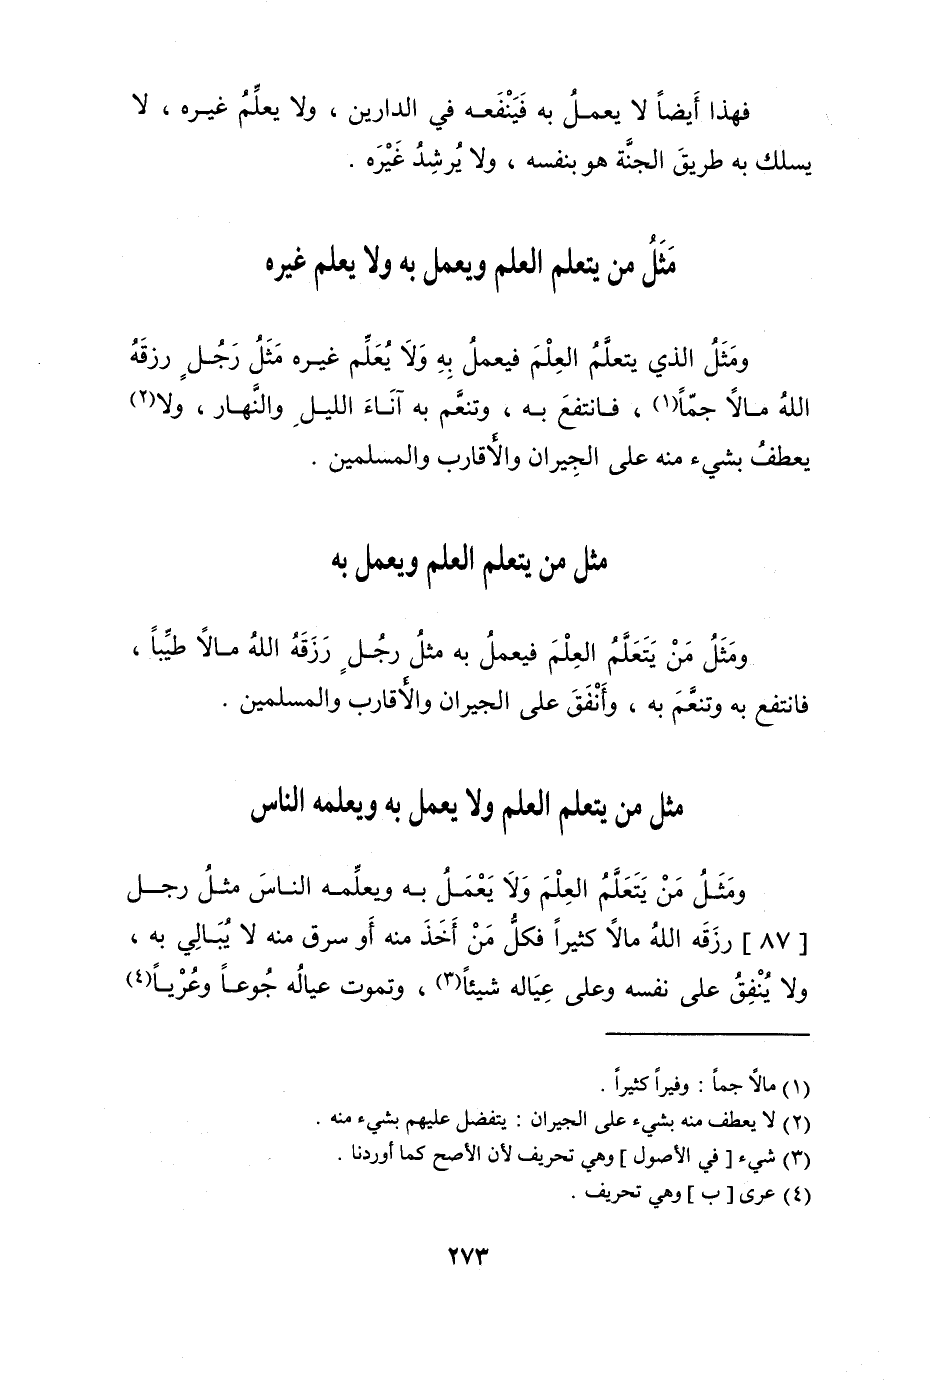 فهذا أيضاً لا يعمـلُ به فَيَنْفَعـه في الدارين ، ولا يعلِّمُ غيـره ، لا
يسلك به طريقَ الجنَّة هو بنفسه ، ولا يُرشِدُ غَيْرَه .
مَثَلُ من يتعلم العلم ويعمل به ولا يعلم غيره
ومَثَلُ الذي يتعلَّمُ العِلْمَ فيعملُ بِهِ وَلَا يُعَلِّم غيـره مَثَلُ رَجُـلٍ رزقَهُ
اللهُ مـالًا جمّاً(١) ، فـانتفعَ بـه ، وتنعَّم به آنَـاءَ الليـلِ والنَّهـار ، ولا(٢)
يعطفُ بشيء منه على الجِيران والأقارب والمسلمين .
مثل من يتعلم العلم ويعمل به
ومَثَلُ مَنْ يَتَعَلَّمُ العِلْمَ فيعملُ به مثلُ رجُـلٍ رَزَقَهُ اللهُ مـالًا طيِّباً ،
فانتفع به وتنعَّمَ به ، وأَنْفَقَ على الجيران والأقارب والمسلمين .
مثل من يتعلم العلم ولا يعمل به ويعلمه الناس
ومَثَـلُ مَنْ يَتَعَلَّمُ العِلْمَ وَلَا يَعْمَـلُ بـه ويعلِّمـه النـاسَ مثـلُ رجـل
[ ٨٧ ] رزَقَه اللهُ مالًا كثيراً فكلُّ مَنْ أَخَذَ منه أَو سرق منه لا يُبَـالِي به ،
ولا يُنْفِقُ على نفسه وعلى عِيَاله شيئاً(٣) ، وتموت عيالُه جُوعـاً وعُرْيـاً(٤)
(١) مالًا جماً : وفيراً كثيراً .
(٢) لا يعطف منه بشيء على الجيران : يتفضل عليهم بشيء منه .
(٣) شيء [ في الأصول ] وهي تحريف لأن الأصح كما أوردنا .
(٤) عرى [ ب ] وهي تحريف .
٢٧٣